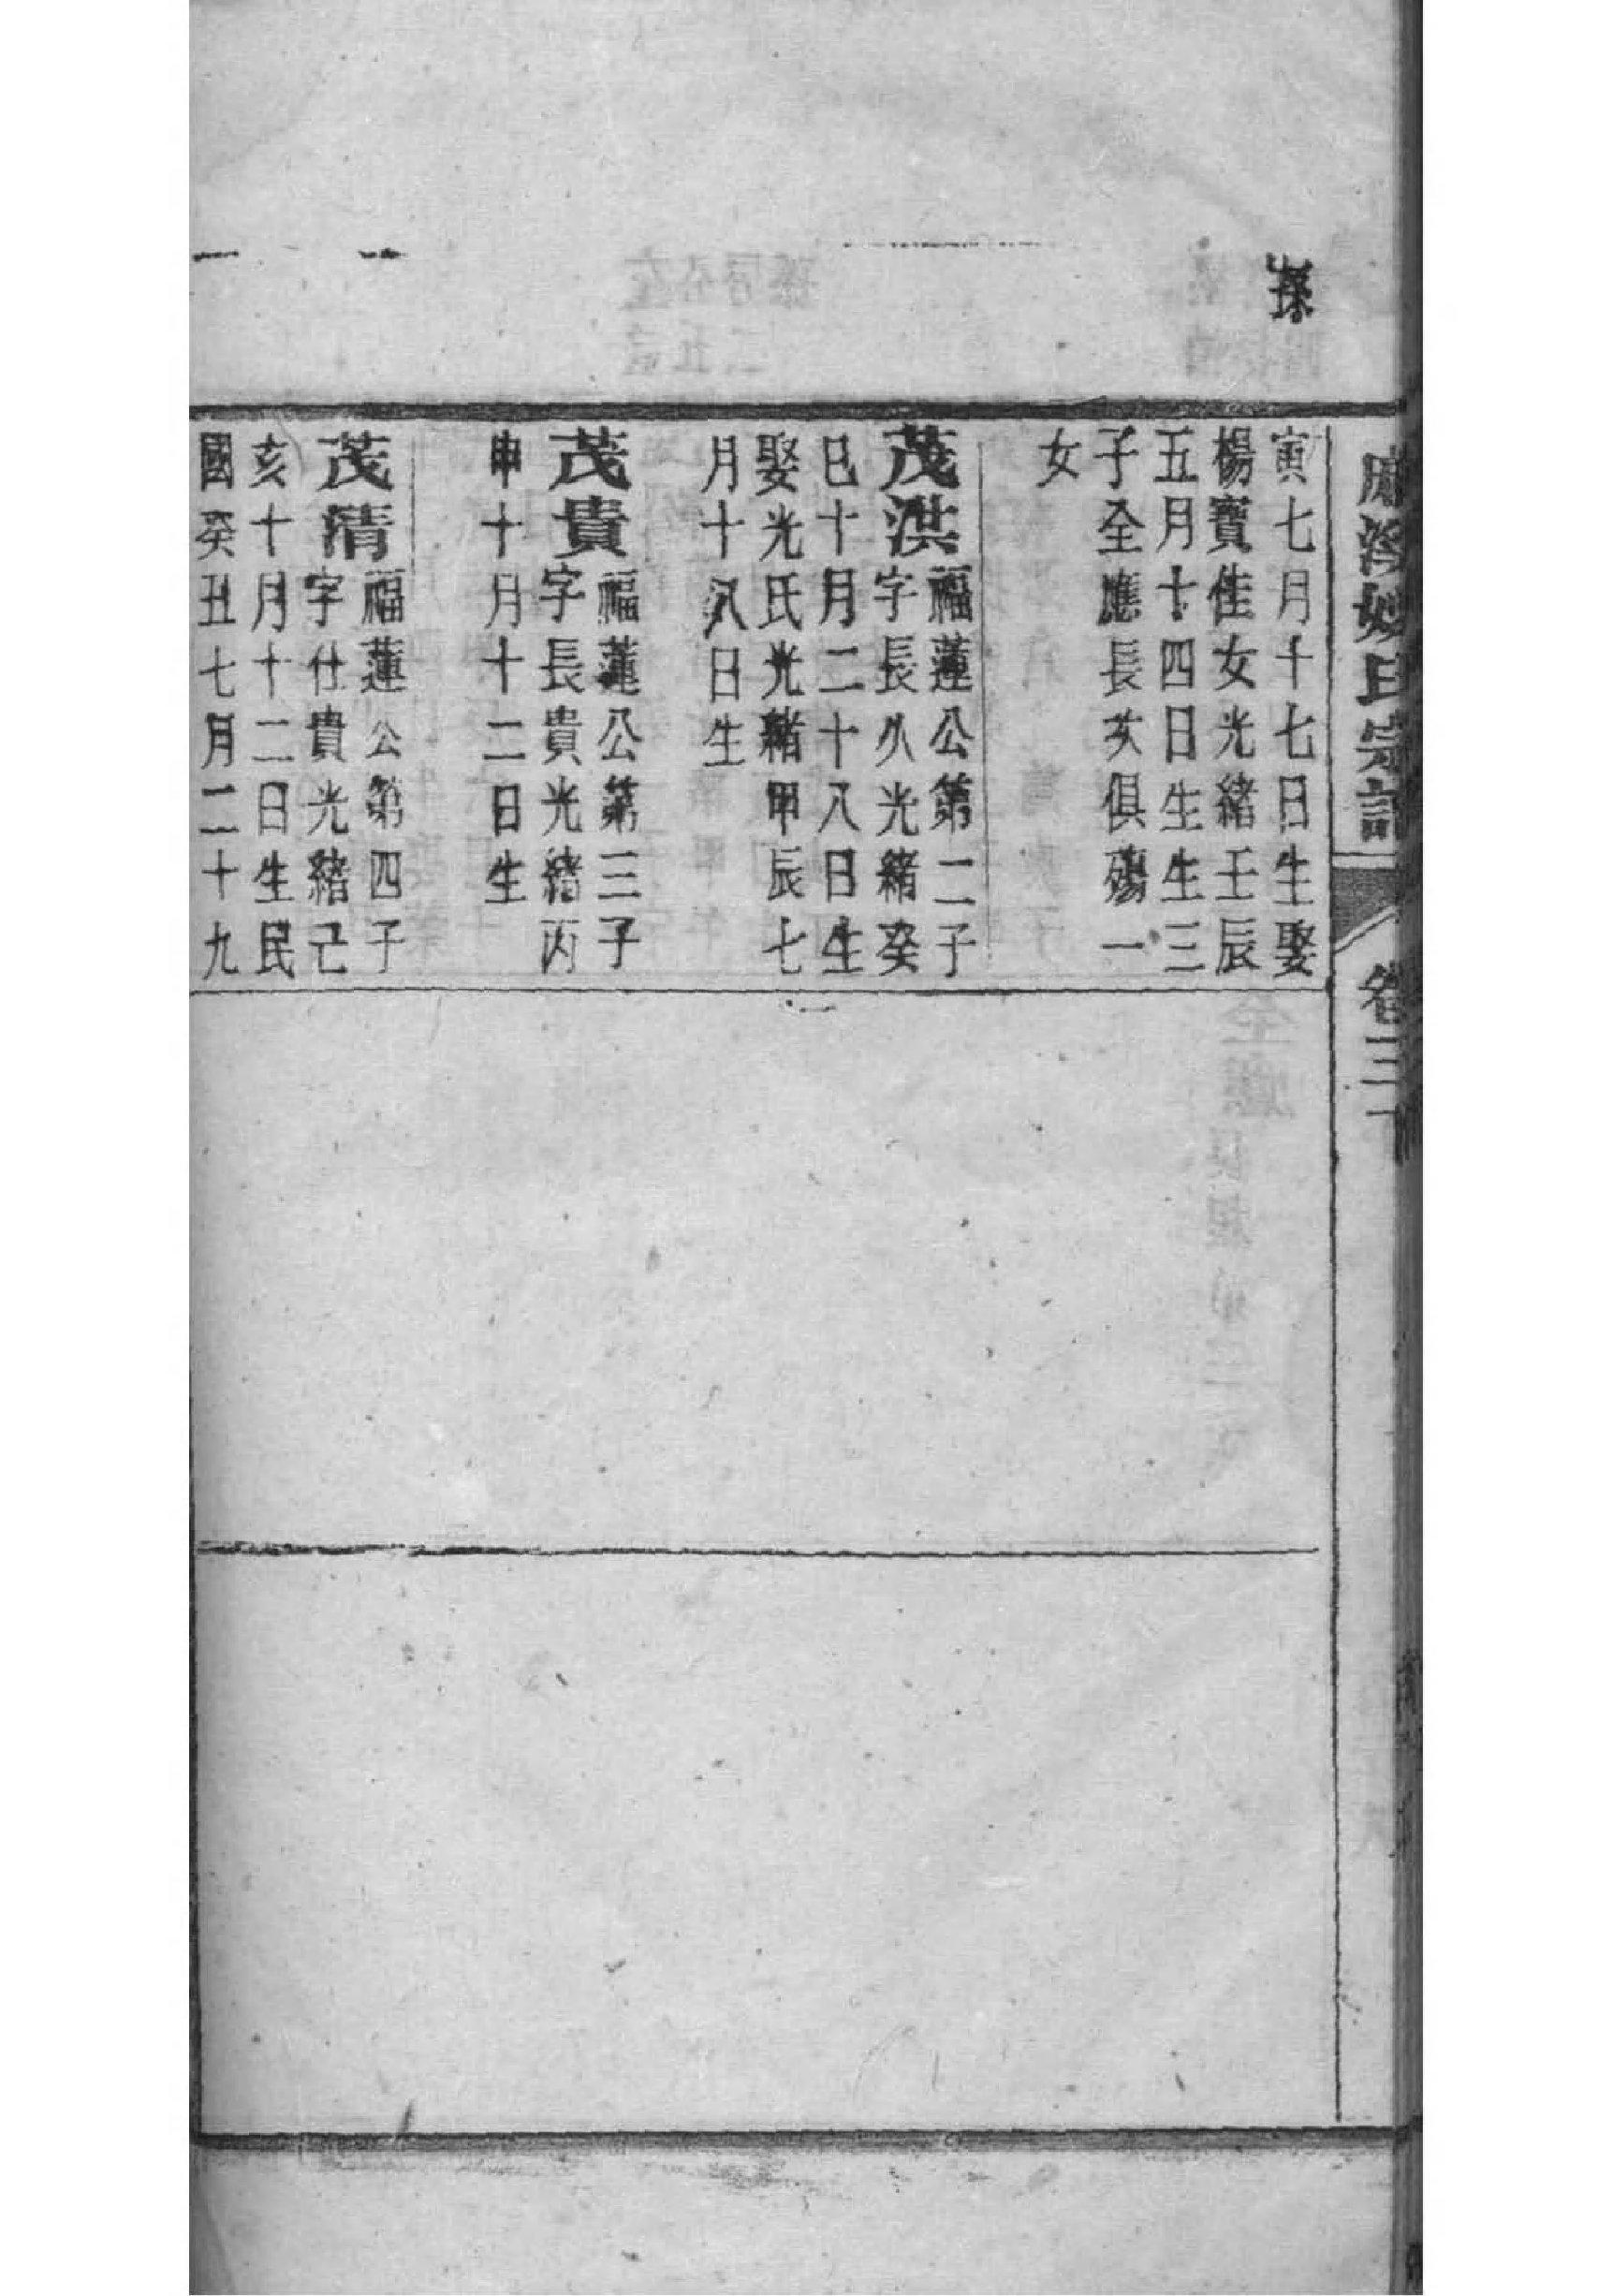 孫
寅七月十七日生娶
楊寶佳女光緒壬辰
五月十四日生生三
子全應長次俱殤一
女
茂洪福蓮公第二子
字長久光緒癸
巳十月二十八日生
娶光氏光緒甲辰七
月十八日生
茂貴福蓮公第三子
字長貴光緒丙
申十月十二日生
茂清福蓮公第四子
字仕貴光緒己
亥十月十二日生民
國癸丑七月二十九
氏宗譜
卷三